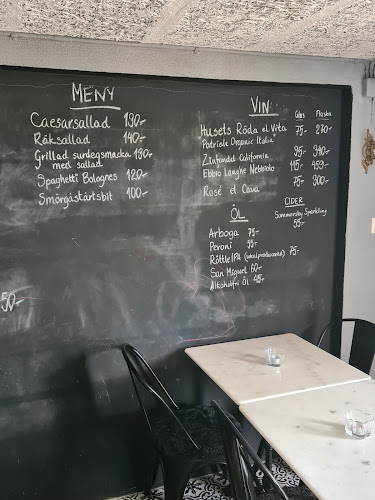 MENY
Caesarsallad 130:-
Räksallad 140:-
Grillad surdegsmacka 130:-
med sallad
Spaghetti Bolognes 120:-
Smörgåstårtsbit 100:-
50:-
VIN
Glas Flaska
Husets Röda el Vita 75:- 270:-
"Patriale Organic Italia"
Zinfandel California 95:- 340:-
Ebbio Langhe Nebbiolo 115:- 459:-
Rosé el Cava 75:- 300:-
ÖL
Arboga 75:-
Peroni 55:-
Röttle IPA (lokalproducerad) 75:-
San Miguel 60:-
Alkoholfri Öl 45:-
CIDER
Somersby Sparkling
55:-